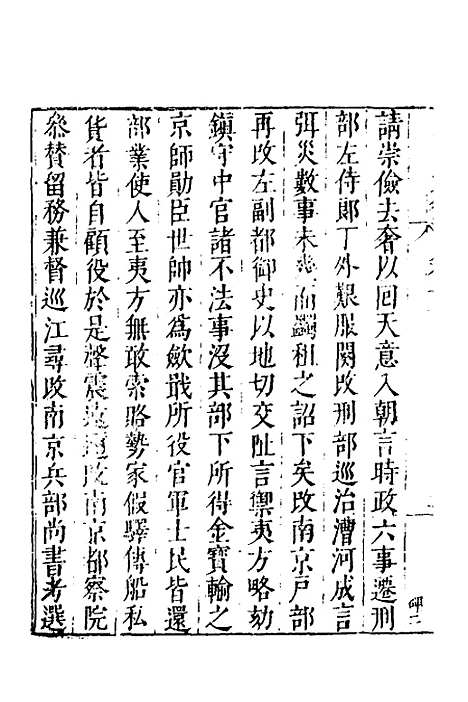 請崇儉去奢以回天意入朝言時政六事遷刑
部左侍郎丁外艱服闋改刑部巡治漕河成言
弭災數事未幾而蠲租之詔下矣改南京戸部
再改左副都御史以地切交阯言禦夷方略劾
鎮守中官諸不法事沒其部下所得金寶輸之
京師勛臣世帥亦為歛戢所役官軍士民皆還
部業使人至夷方無敢索賂勢家假驛傳船私
貨者皆自顧役於是聲震改南京都察院
叅賛留務兼督巡江尋改南京兵部尚書考選